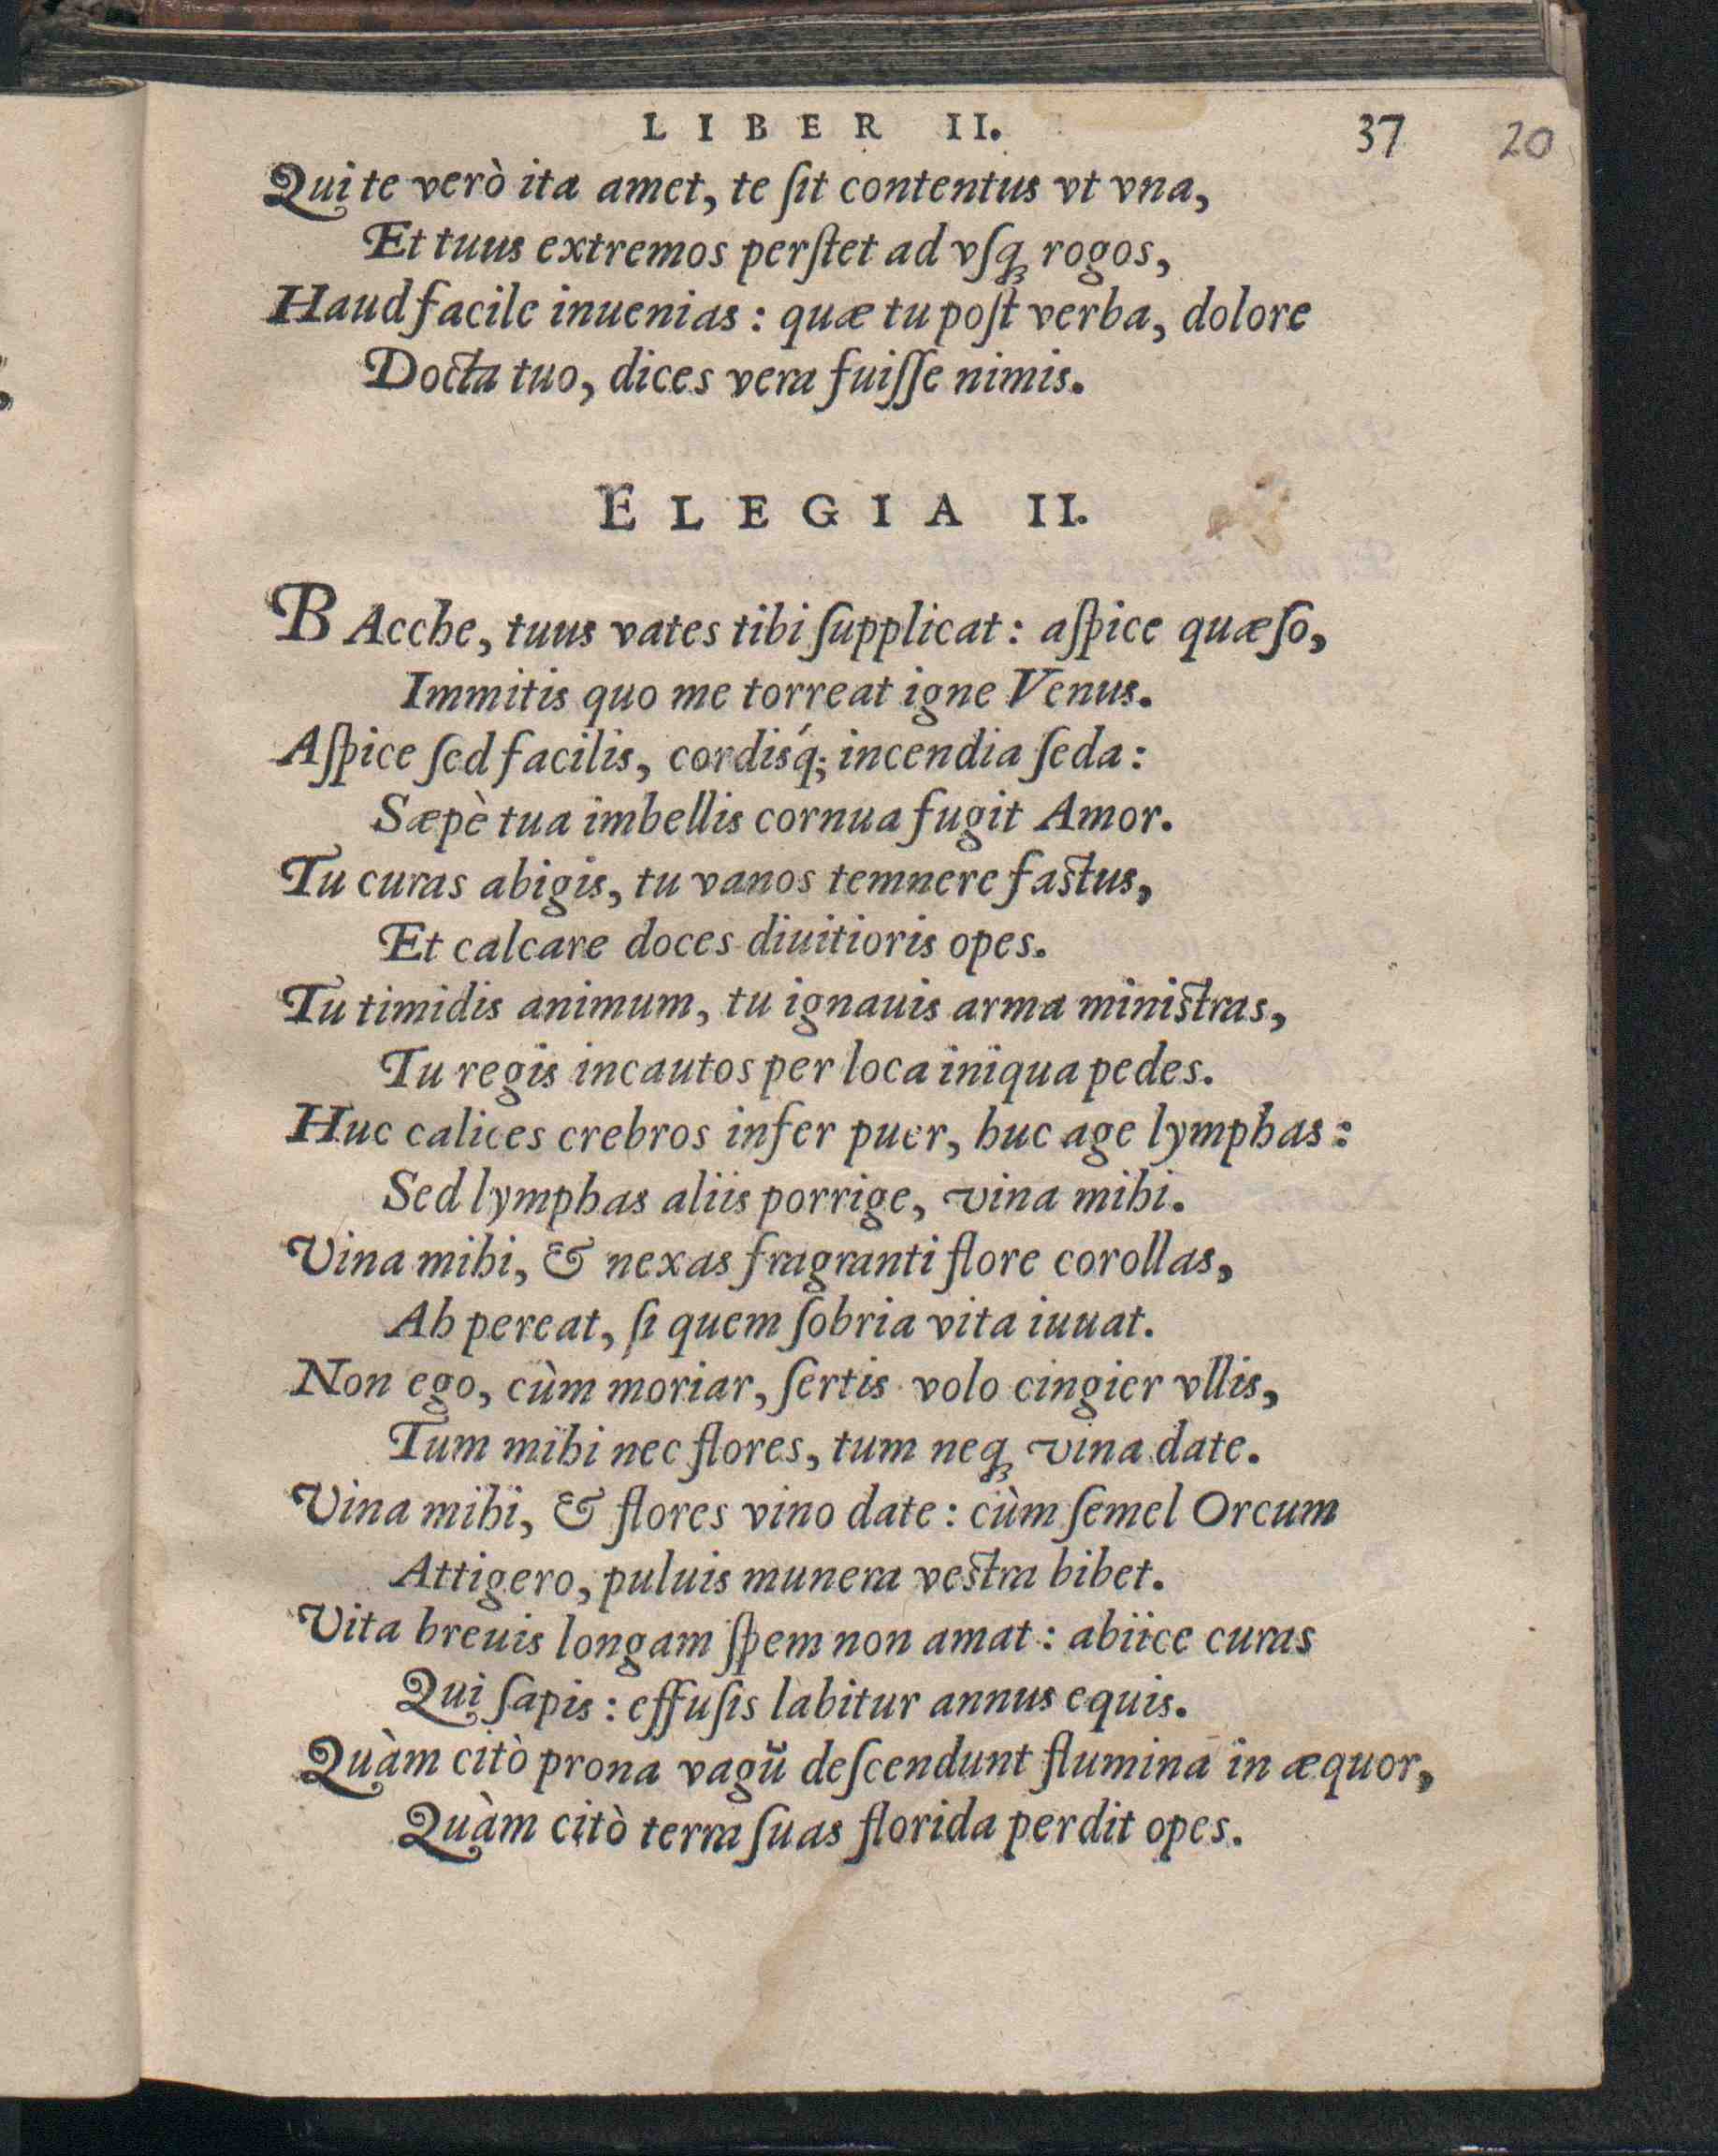 LIBER II. 37 20
Qui te verò ita amet, te ſit contentus vt vna,
Et tuus extremos perſtet ad vſq; rogos,
Haud facile inuenias: quæ tu poſt verba, dolore
Docta tuo, dices vera fuiſſe nimis.
ELEGIA II.
BAcche, tuus vates tibi ſupplicat: aſpice quæſo,
Immitis quo me torreat igne Venus.
Aſpice ſed facilis, cordisq́; incendia ſeda:
Sæpè tua imbellis cornua fugit Amor.
Tu curas abigis, tu vanos temnere faſtus,
Et calcare doces diuitioris opes.
Tu timidis animum, tu ignauis arma miniſtras,
Tu regis incautos per loca iniqua pedes.
Huc calices crebros infer puer, huc age lymphas:
Sed lymphas aliis porrige, vina mihi.
Vina mihi, & nexas fragranti flore corollas,
Ah pereat, ſi quem ſobria vita iuuat.
Non ego, cùm moriar, ſertis volo cingier vllis,
Tum mihi nec flores, tum neq; vina date.
Vina mihi, & flores vino date: cùm ſemel Orcum
Attigero, puluis munera veſtra bibet.
Vita breuis longam ſpem non amat: abiice curas
Qui ſapis: effuſis labitur annus equis.
Quàm citò prona vagū deſcendunt flumina in æquor,
Quàm citò terra ſuas florida perdit opes.